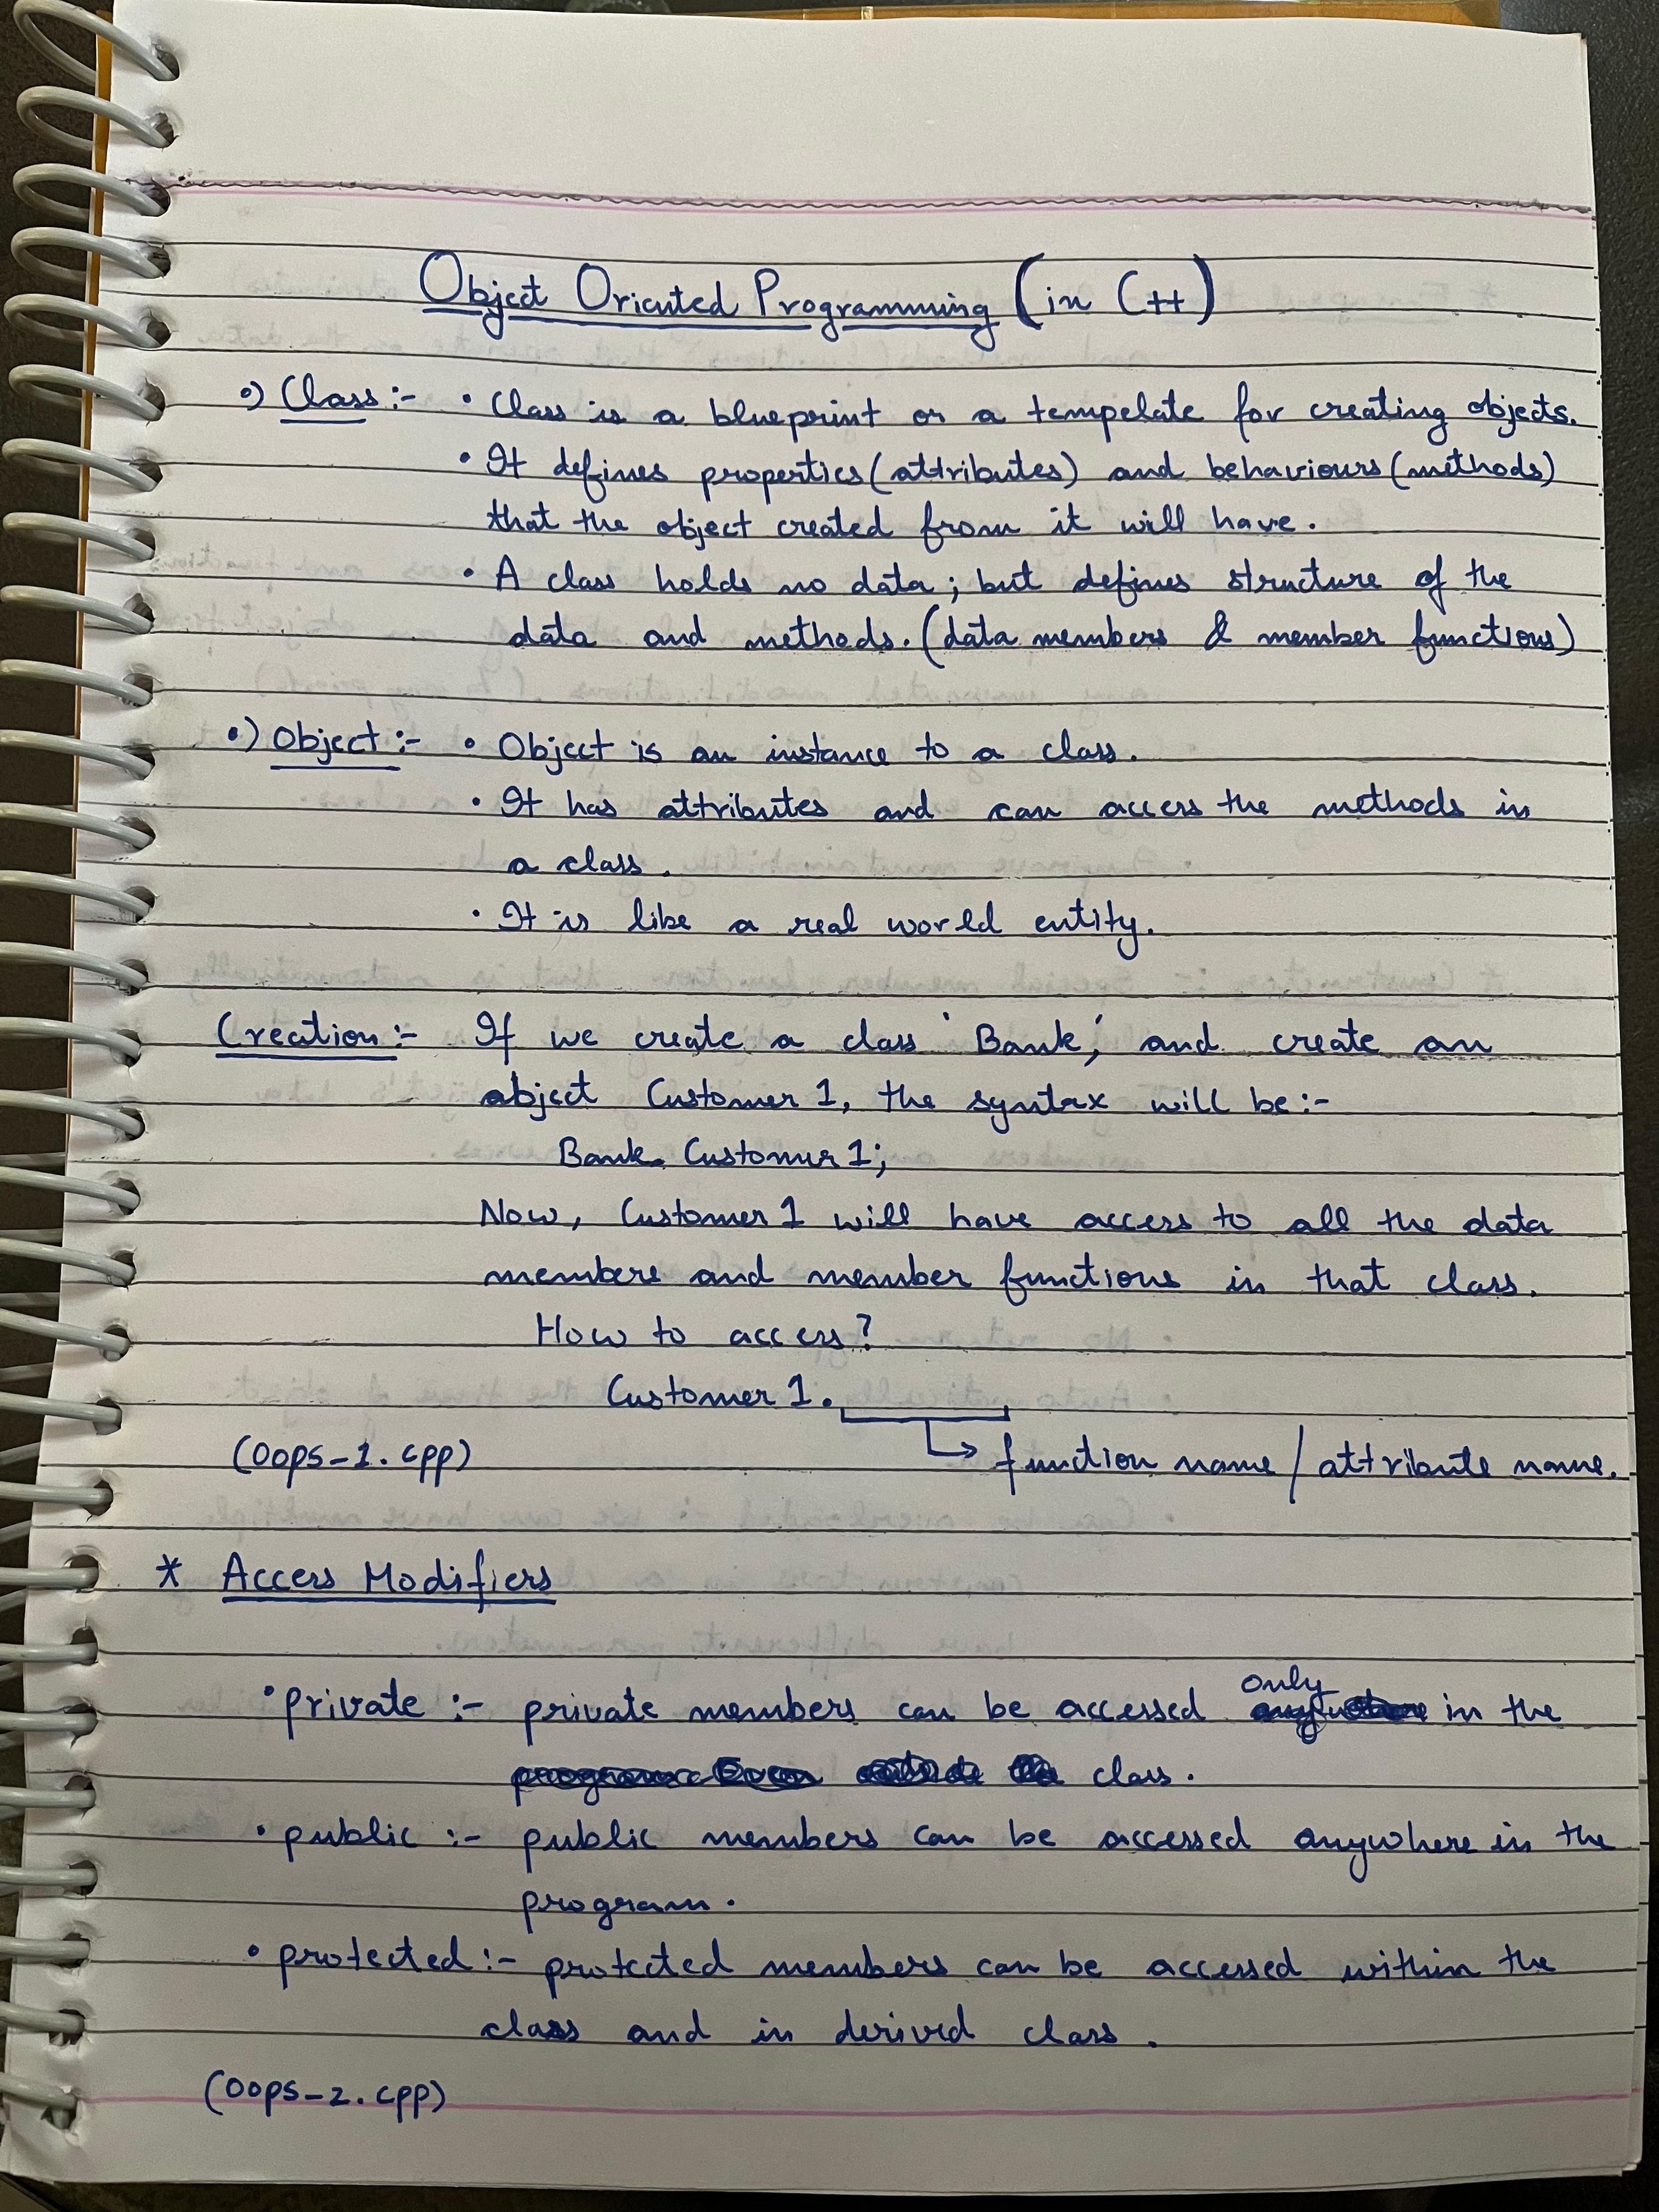 Object Oriented Programming (in C++)
•) Class :- • Class is a blueprint or a tempelate for creating objects.
• It defines properties (attributes) and behaviours (methods)
that the object created from it will have.
• A class holds no data ; but defines structure of the
data and methods. (data members & member functions)
•) Object :- • Object is an instance to a class.
• It has attributes and can access the methods in
a class.
• It is like a real world entity.
Creation :- If we create a class 'Bank', and create an
object Customer 1, the syntax will be :-
Bank Customer 1;
Now, Customer 1 will have access to all the data
members and member functions in that class.
How to access?
Customer 1.
(Oops-1.cpp) function name / attribute name.
* Access Modifiers
only
• private :- private members can be accessed in the
class.
• public :- public members can be accessed anywhere in the
program.
• protected :- protected members can be accessed within the
class and in derived class.
(Oops-2.cpp)